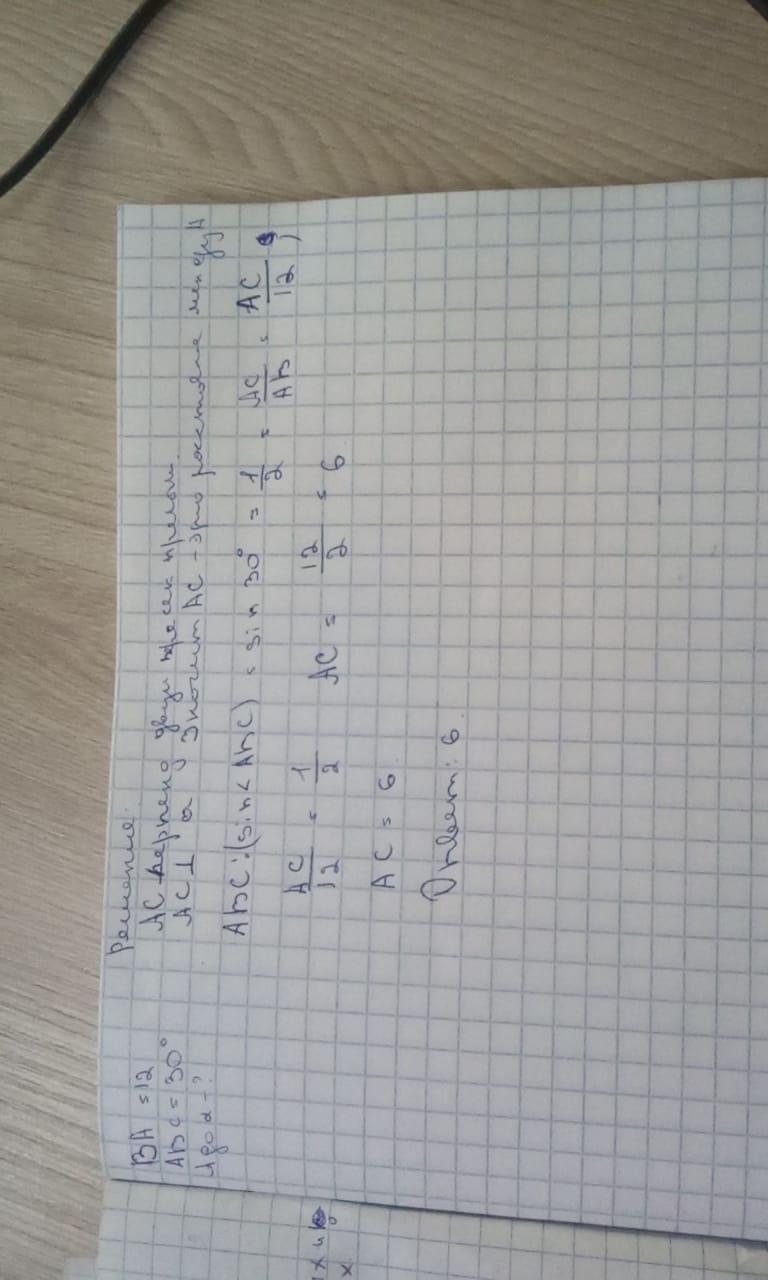 BA = 12
ABC = 30°
A до a - ?
Решение:
AC перпенд двум пресек прямым.
AC ⊥ a Значит AC - это расстояние между A
ABC: (sin < ABC) = sin 30° = 1/2 = AC/AB = AC/12 ;
AC/12 = 1/2 AC = 12/2 = 6
AC = 6
Ответ: 6.